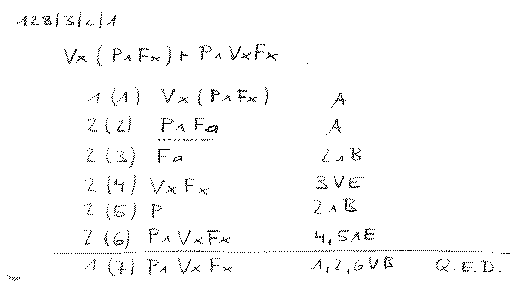 128/3/2/1
Vx (P∧Fx) ⊢ P∧VxFx
1 (1) Vx (P∧Fx) A
2 (2) P∧Fa A
2 (3) Fa 2∧B
2 (4) VxFx 3VE
2 (5) P 2∧B
2 (6) P∧VxFx 4,5∧E
1 (7) P∧VxFx 1,2,6VB Q.E.D.